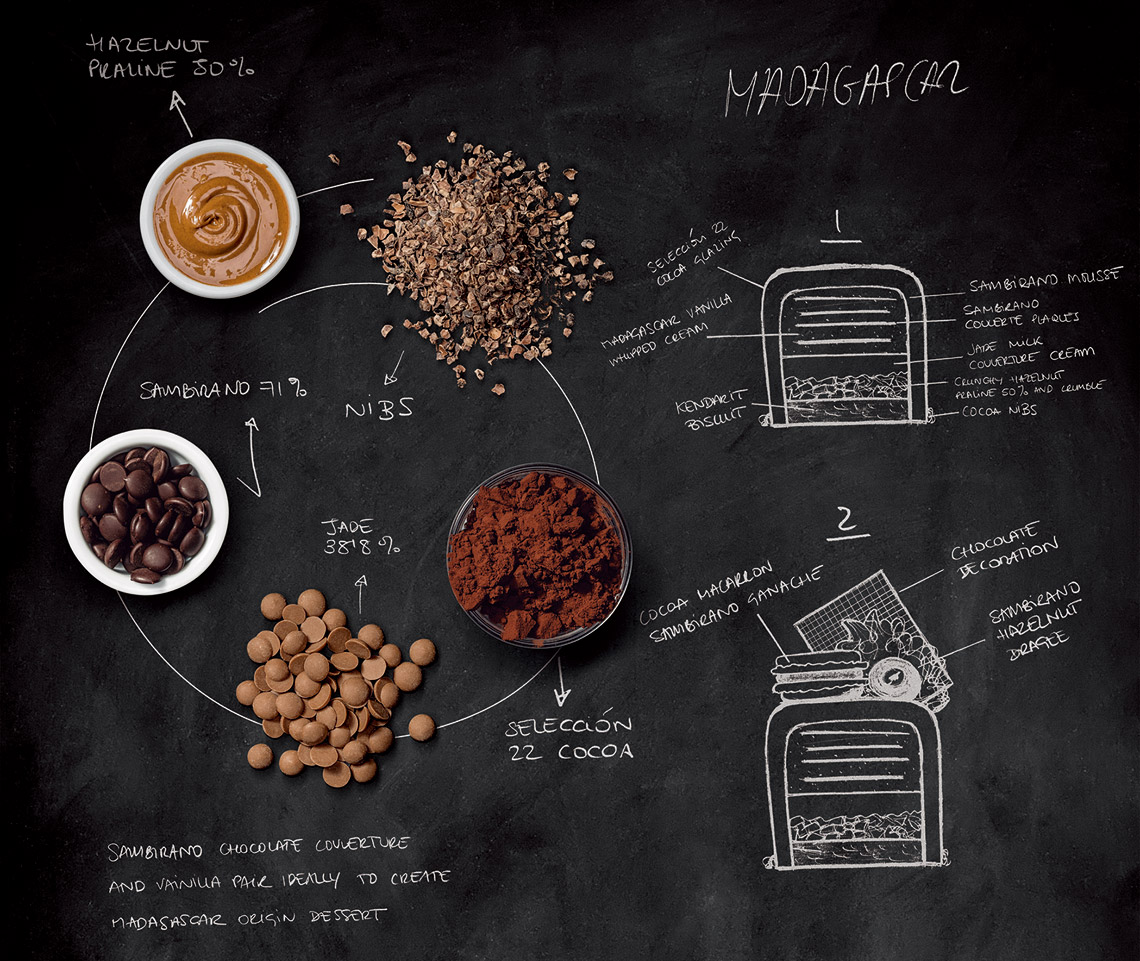 HAZELNUT
PRALINE 50%
MADAGASCAR
NIBS
SAMBIRANO 71%
JADE
38'8%
SELECCIÓN
22 COCOA
SAMBIRANO CHOCOLATE COUVERTURE
AND VAINILLA PAIR IDEALLY TO CREATE
MADAGASCAR ORIGIN DESSERT
1
SELECCIÓN 22
COCOA GLAZING
MADAGASCAR VANILLA
WHIPPED CREAM
KENDARIT
BISCUIT
SAMBIRANO MOUSSE
SAMBIRANO
COUVERTE PLAQUES
JADE MILK
COUVERTURE CREAM
CRUNCHY HAZELNUT
PRALINE 50% AND CRUMBLE
COCOA NIBS
2
COCOA MACARRON
SAMBIRANO GANACHE
CHOCOLATE
DECORATION
SAMBIRANO
HAZELNUT
DRAGEE